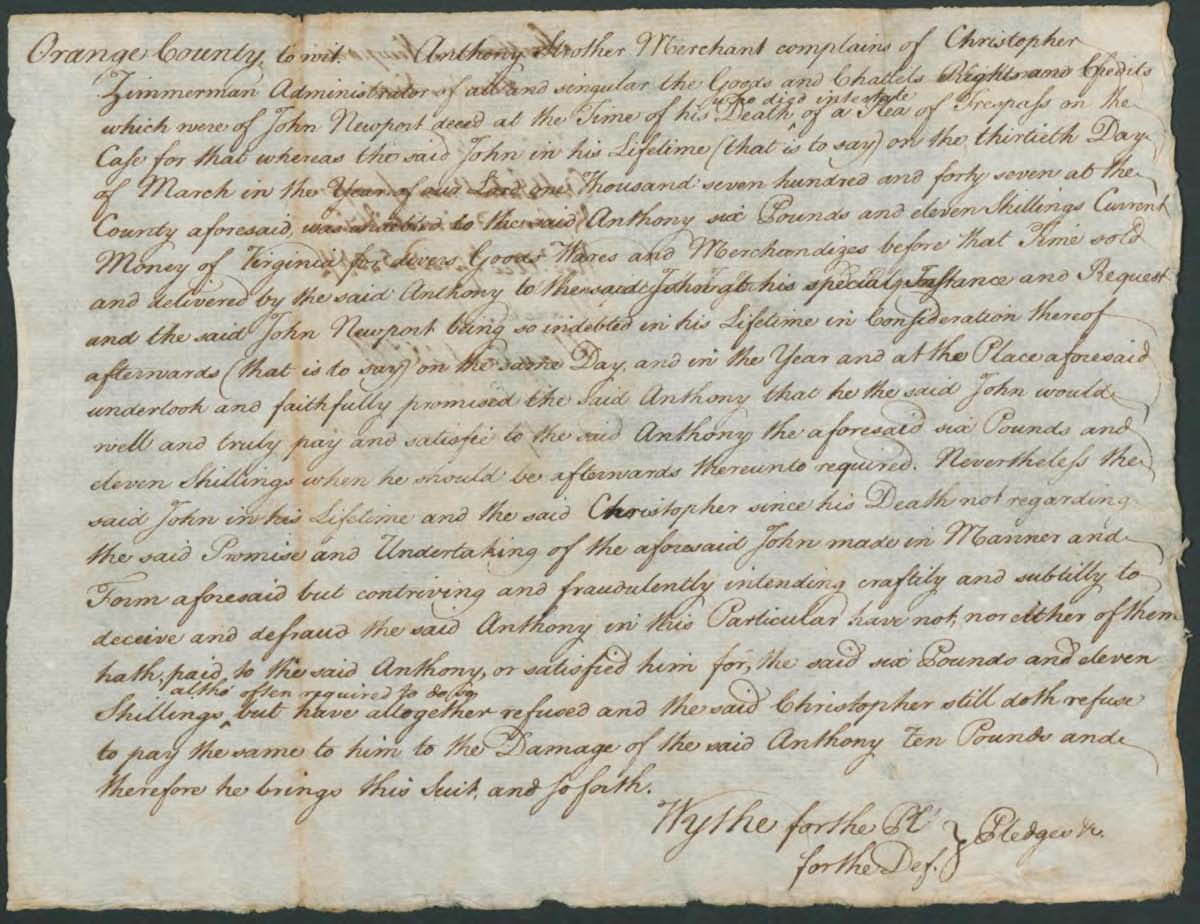 Orange County, to wit Anthony Strother Merchant complains of Christopher
Zimmerman Administrator of all and singular the Goods and Chattels Rights and Credits
who died intestate
which were of John Newport deced at the Time of his Death of a Plea of Trespass on the
Case for that whereas the said John in his Lifetime (that is to say) on the thirtieth Day
of March in the Year of our Lord one Thousand seven hundred and forty seven at the
County aforesaid, was indebted to the said Anthony six Pounds and eleven Shillings Current
Money of Virginia for divers Goods Wares and Merchandizes before that Time sold
and delivered by the said Anthony to the said John at his special Instance and Request
and the said John Newport being so indebted in his Lifetime in Consideration thereof
afterwards (that is to say) on the same Day, and in the Year and at the Place aforesaid
undertook and faithfully promised the said Anthony that he the said John would
well and truly pay and satisfie to the said Anthony the aforesaid six Pounds and
eleven Shillings when he should be afterwards thereunto required. Nevertheless the
said John in his Lifetime and the said Christopher since his Death not regarding
the said Promise and Undertaking of the aforesaid John made in Manner and
Form aforesaid but contriving and fraudulently intending craftily and subtilly to
deceive and defraud the said Anthony in this Particular have not, nor either of them
hath, paid to the said Anthony, or satisfied him for, the said six Pounds and eleven
altho' often required to do so
Shillings, but have altogether refused and the said Christopher still doth refuse
to pay the same to him to the Damage of the said Anthony Ten Pounds and
therefore he brings this Suit, and so forth.
Wythe for the Pl.
for the Def. } Pledges &c.